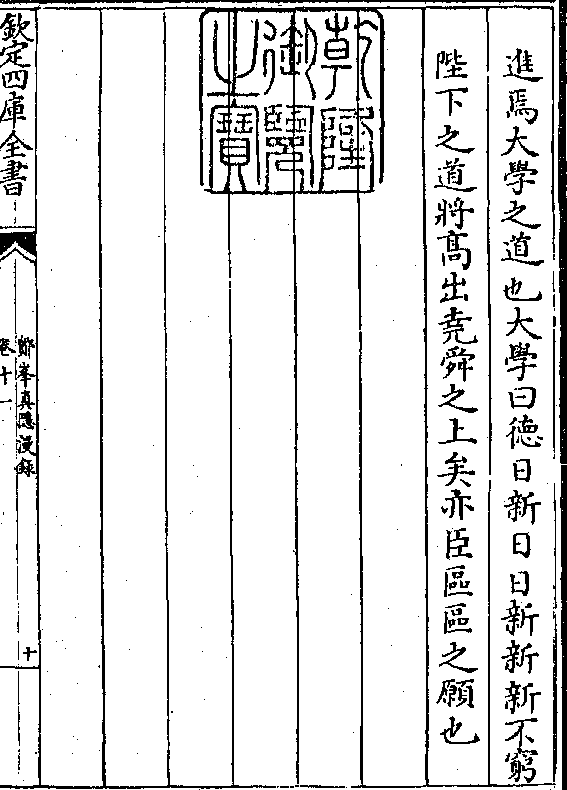 進焉大學之道也大學曰徳日新日日新新新不窮
陛下之道將髙出堯舜之上矣亦臣區區之願也
乾隆御覽之寶
欽定四庫全書
鄮峯真隠漫録
卷十一
十